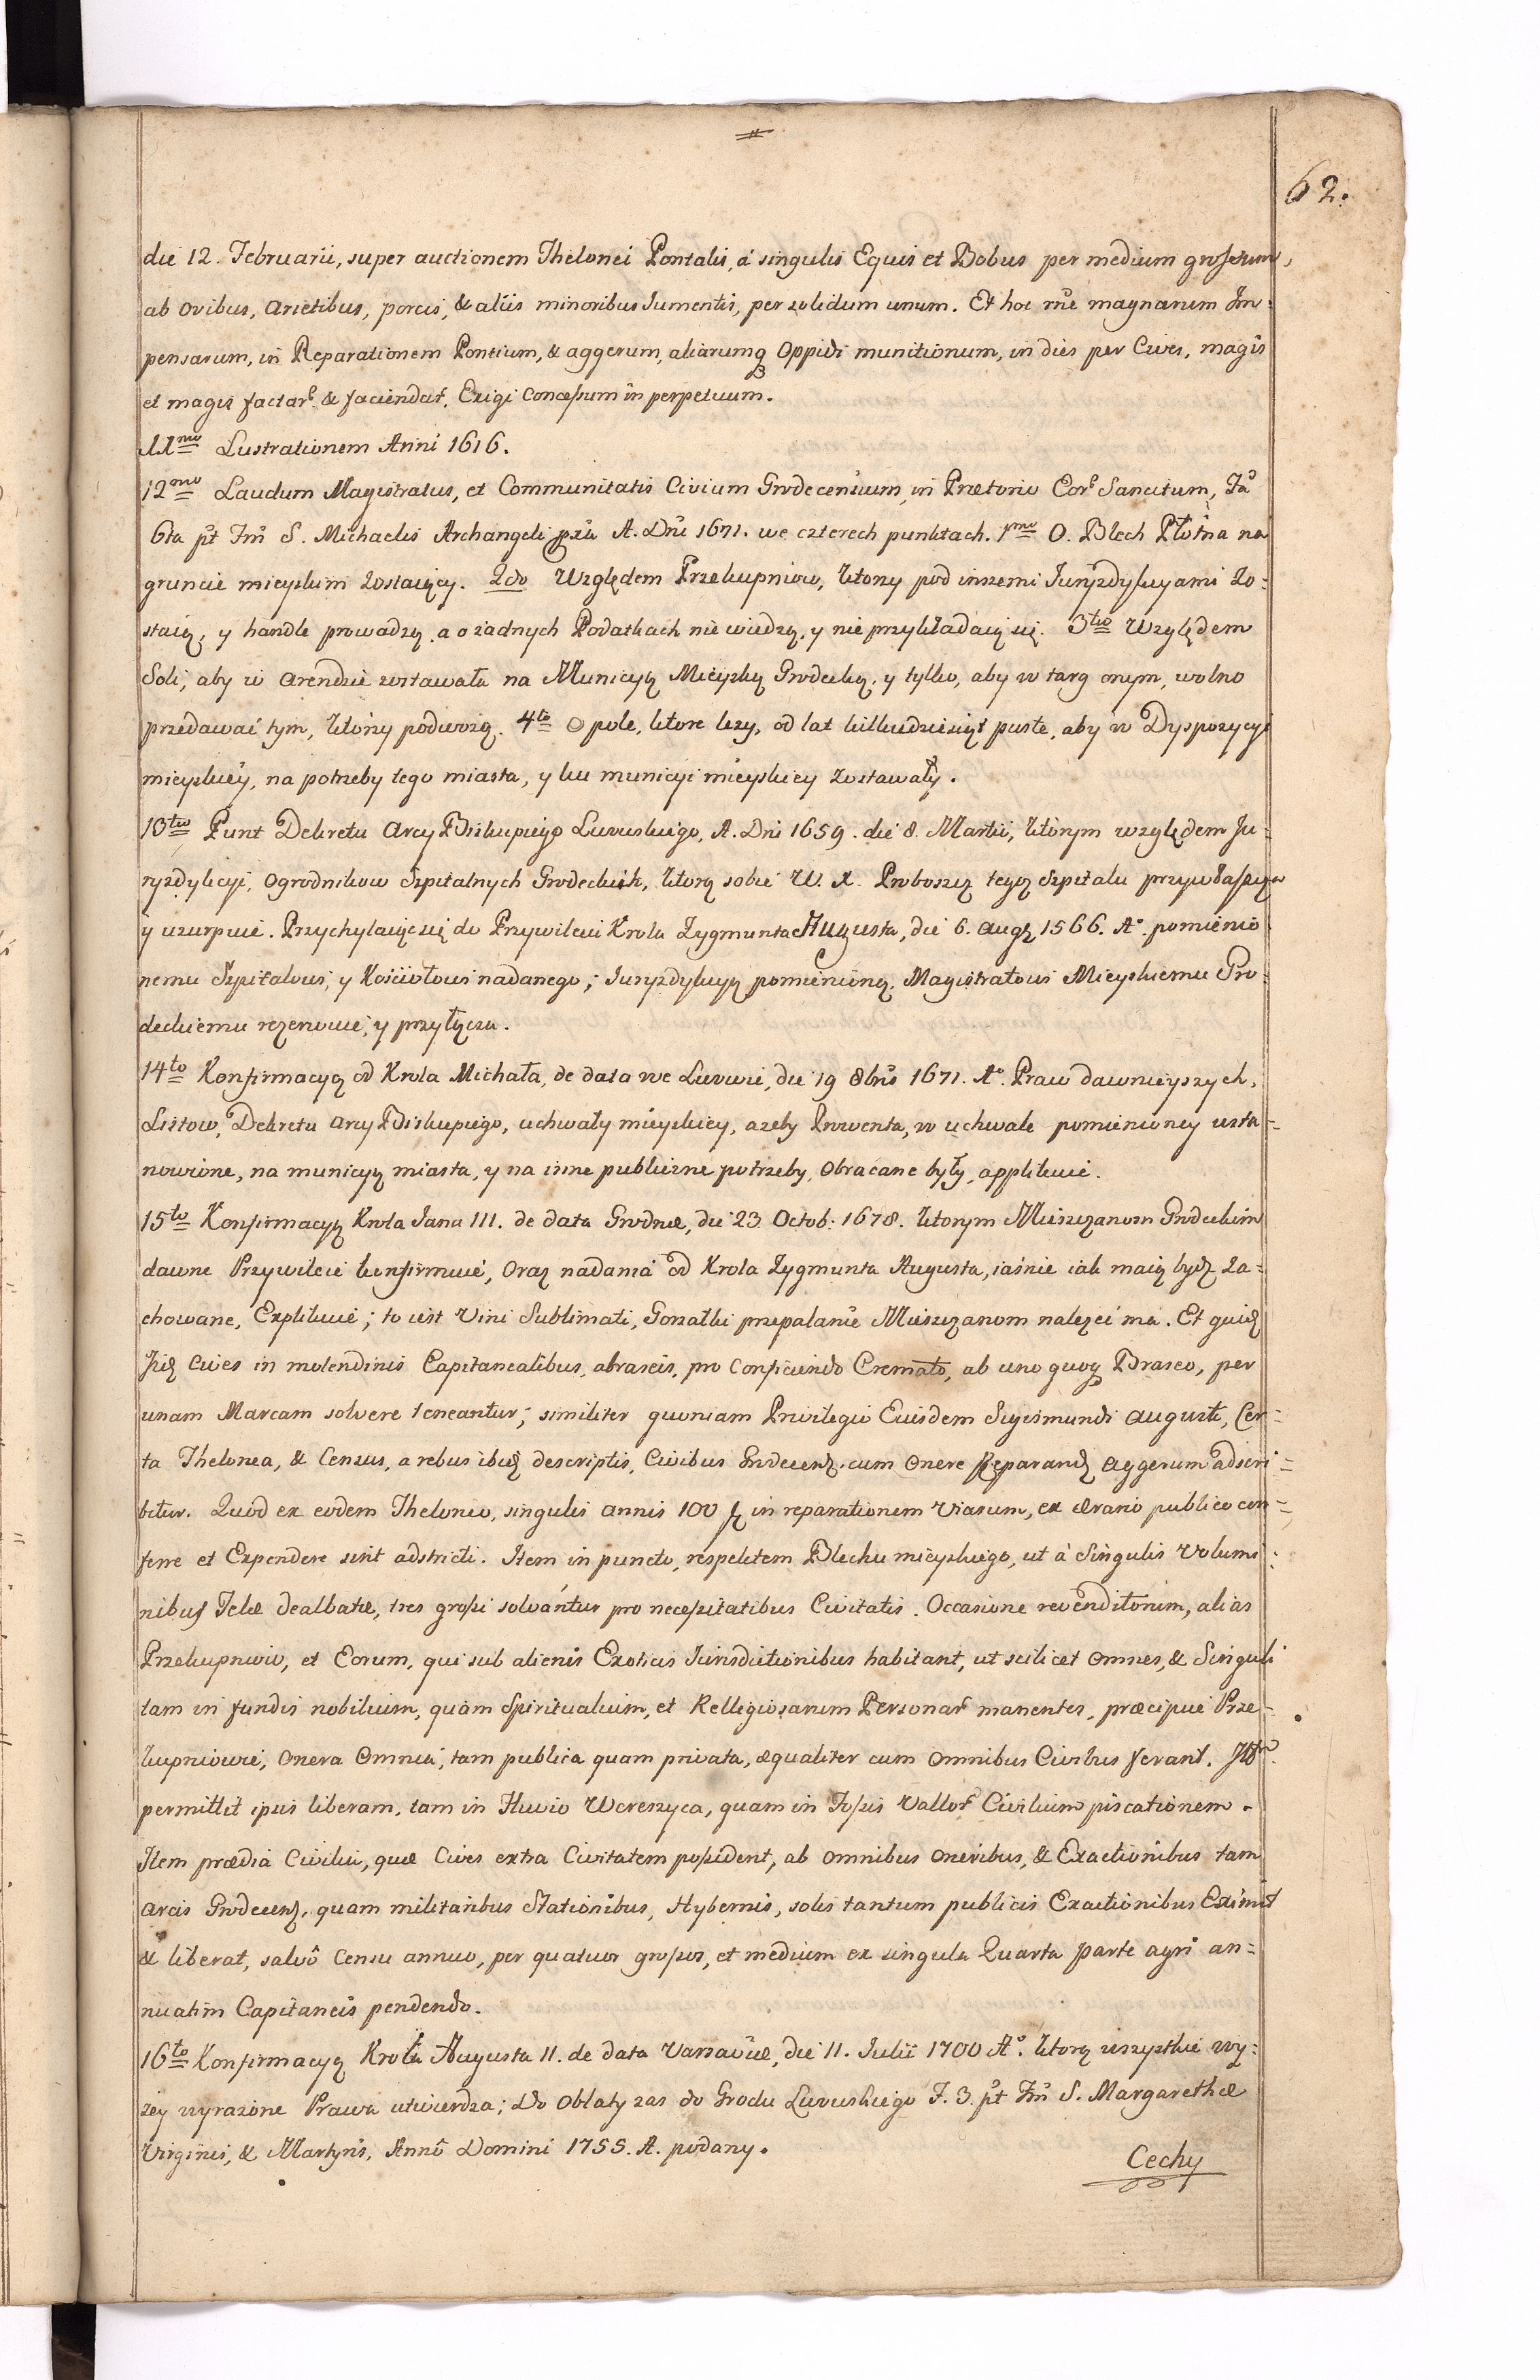 62.
die 12. Februarii, super auctionem Thelonei Pontalis, á singulis Equis et Bobus per medium grossum,
ab ovibus, arietibus, porcis, & aliis minoribus Iumentis, per solidum unum. Et hoc rñe magnarum Im-
pensarum, in Reparationem Pontium, & aggerum, aliarumq Oppidi munitionum, in dies per Cives, magis
et magis factar. & faciendar. Exigi Concessum in perpetuum.
11mo Lustrationem Anni 1616.
12mo Laudum Magistratus, et Communitatis Civium Grodecensium, in Prætorio Cor. Sancitum, Fa
6ta pt Fm S. Michaelis Archangeli A. Dni 1671. we czterech punktach. 1mo O. Blech Płotna na
gruncie mieyskim zostaiący. 2do Względem Przekupniow, ktorzy pod inszemi Iuryzdykcyami zo-
staią, y handle prowadzą, a o żadnych Podatkach nie wiedzą, y nie przykładaią się. 3tio Względem
Soli, aby w arendzie zostawała na Municyą Mieyską Grodecką, y tylko, aby w targ onym, wolno
przedawać tym, ktorzy podwożą. 4to O pole, ktore leży, od lat kilkudziesiąt puste, aby w Dyspozycyi
mieyskiey, na potrzeby tego miasta, y ku municyi mieyskiey zostawały.
13tio Punt Dekretu Arcy Biskupiego Lwowskiego, A. Dni 1659. die 8. Martii, ktorym względem Iu-
ryzdykcyi, ogrodnikow Szpitalnych Grodeckich, ktorą sobie W. X. Proboszcz tegoż Szpitalu przywłaszcza
y uzurpuie. Przychylaiąc się do Przywileiu Krola Zygmunta Augusta, die 6. Aug 1566. Aº. pomienio
nemu Szpitalowi, y Kościołowi nadanego; Iuryzdykcyą pomienioną, Magistratowi Mieyskiemu Gro-
deckiemu rezerwuie, y przyłącza.
14to Konfirmacyą od Krola Michała, de data we Lwowie, die 19 8bris 1671. Aº. Praw dawnieyszych,
Listow, Dekretu Arcy Biskupiego, uchwały mieyskiey, ażeby Prowenta, w uchwale pomienioney usta-
nowione, na municyą miasta, y na inne publiczne potrzeby, obracane były, applikuie.
15to Konfirmacyą Krola Iana III. de data Grodnæ, die 23 Octob: 1678. ktorym Mieszczanom Grodeckim
dawne Przywileie konfirmuie, oraz nadania od Krola Zygmunta Augusta, iaśnie iak maią bydz za-
chowane, Explikuie; to iest Vini Sublimati, Gorzałki przepalanie Mieszczanom należeć ma. Et quid
Iid Cives in molendinis Capitanealibus, abraseis, pro Conficiendo Cremato, ab uno quoq Braseo, per
unam Marcam solvere teneantur; similiter quoniam Privilegio Eiusdem Sigismundi Augusti, Cer-
ta Thelonea, & Census, a rebus ibid descriptis, Civibus Grodecens. cum Onere Reparand Aggerum adscri-
bitur. Quod ex eodem Theloneo, singulis annis 100 f in reparationem Viarum, ex ærario publico con-
ferre et Expendere sint adstricti. Item in puncto, respektem Blechu mieyskiego, ut á Singulis Volumi-
nibus Telæ dealbatæ, tres grossi solvantur pro necessitatibus Civitatis. Occasione revenditorum, alias
Przekupniow, et Eorum, qui sub alienis Exoticis Iurisdictionibus habitant, ut scilicet omnes, & Singuli
tam in fundis nobilium, quàm Spiritualium, et Religiosarum Personar manentes, præcipue Prze-
kupniowie, Onera Omnia, tam publica quam privata, æqualiter cum Omnibus Civibus ferant. Itẽ
permittit ipsis liberam, tam in Fluvio Wereszyca, quam in Fossis Vallor Civilium piscationem.
Item prædia Civilia, quæ Cives extra Civitatem possident, ab omnibus oneribus, & Exactionibus tam
Arcis Grodecens, quam militaribus Stationibus, Hybernis, solis tantum publicis Exactionibus Eximit
& liberat, salvô Censu annuo, per quatuor grossos, et medium ex singula Quarta parte agri an-
nuatim Capitaneis pendendo.
16to Konfirmacyą Krola Augusta II. de data Varsaviæ, die 11. Iulii 1700 Aº. ktorą wszystkie wy-
żey wyrażone Prawa utwierdza; do Oblaty zas do Grodu Lwowskiego F. 3. pt Fm S. Margarethæ
Virginis, & Martyris, Annô Domini 1755. A. podany.
Cechy